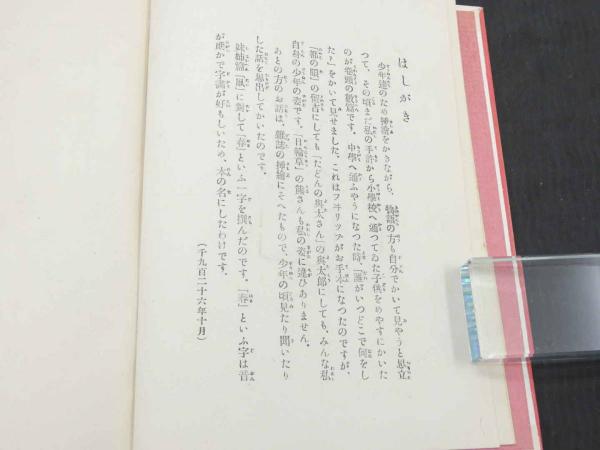 はしがき
少年達のため挿繪をかきながら、物語の方も自分でかいて見やうと思立
つて、その頃まだ私の手許から小學校へ通つてゐた子供をめやすにかいた
のが卷頭の數篇です。中學へ通ふやうになつた時、「誰がいつどこで何をし
た?」をかいて見せました。これはフヰリップがお手本になつたのですが、
「都の眼」の留吉にしても「たどんの與太さん」の與太郎にしても、みんな私
自身の少年の姿です。「日輪草」の熊さんも私の姿に違ひありません。
あとの方のお話は、雜誌の挿繪にそへたもので、少年の頃見たり聞いたり
した話を思出してかいたのです。
妹姉篇「風」に對して「春」といふ一字を撰んだのです。「春」といふ字は音
が朗かで字畫が好もしいため、本の名にしたわけです。
(千九百二十六年十月)